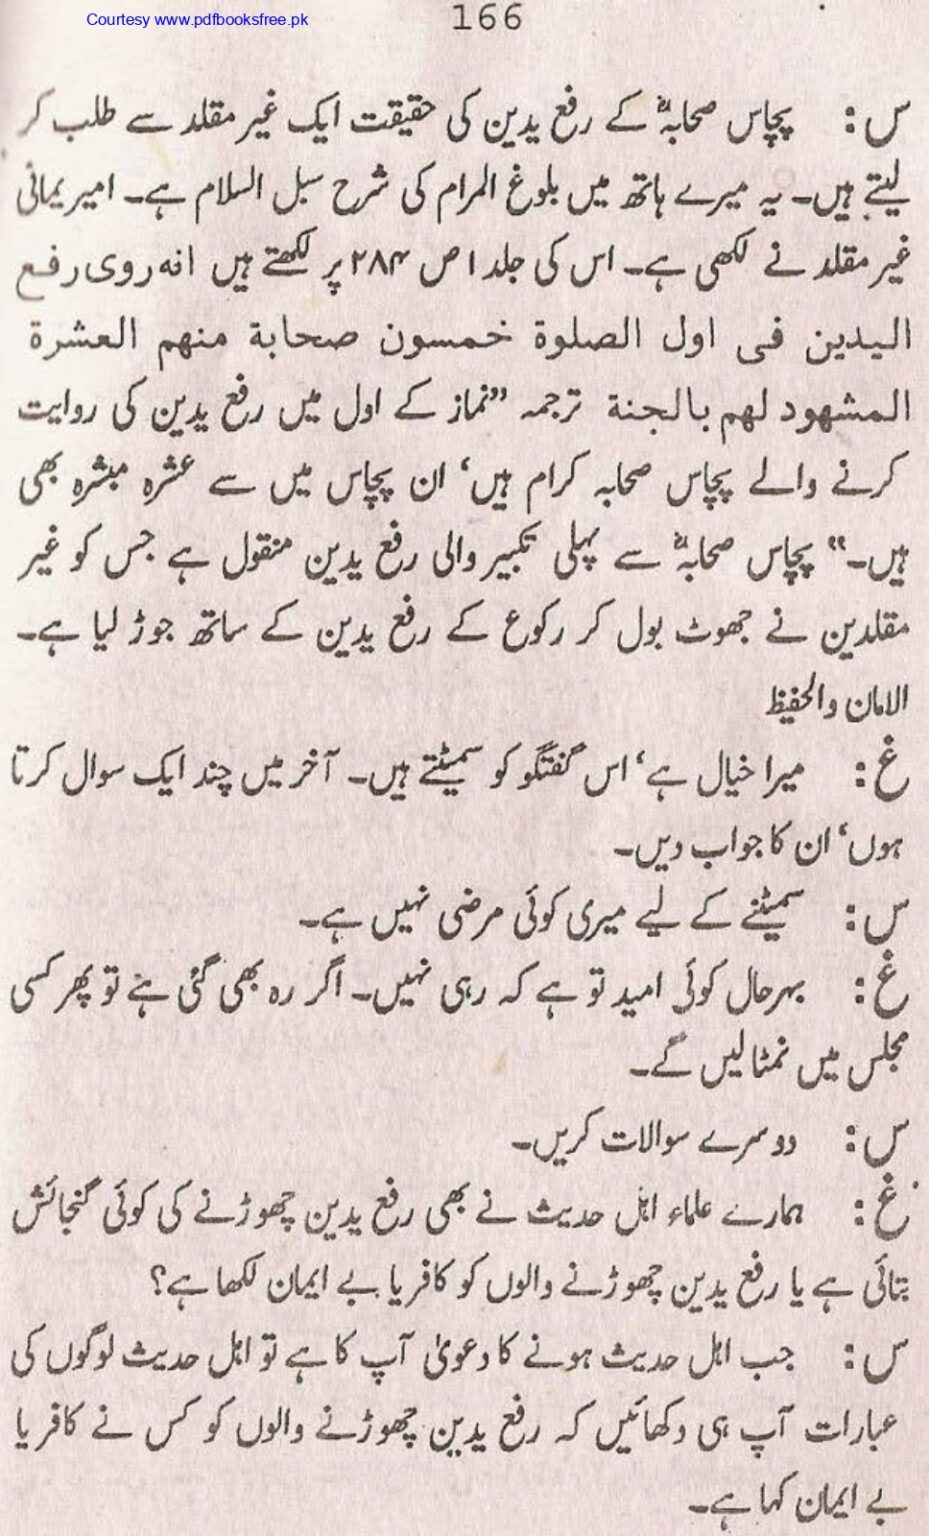 Courtesy www.pdfbooksfree.pk
166
س: پچاس صحابہؓ کے رفع یدین کی حقیقت ایک غیر مقلد سے طلب کر
لیتے ہیں۔ یہ میرے ہاتھ میں بلوغ المرام کی شرح سبل السلام ہے۔ امیر یمانی
غیر مقلد نے لکھی ہے۔ اس کی جلد ۱ ص ۲۸۴ پر لکھتے ہیں انه روى رفع
اليدين فى اول الصلوة خمسون صحابة منهم العشرة
المشهود لهم بالجنة ترجمہ ”نماز کے اول میں رفع یدین کی روایت
کرنے والے پچاس صحابہ کرام ہیں‘ ان پچاس میں سے عشرہ مبشرہ بھی
ہیں۔“ پچاس صحابہؓ سے پہلی تکبیر والی رفع یدین منقول ہے جس کو غیر
مقلدین نے جھوٹ بول کر رکوع کے رفع یدین کے ساتھ جوڑ لیا ہے۔
الامان والحفیظ
غ: میرا خیال ہے‘ اس گفتگو کو سمیٹتے ہیں۔ آخر میں چند ایک سوال کرتا
ہوں‘ ان کا جواب دیں۔
س: سمیٹنے کے لیے میری کوئی مرضی نہیں ہے۔
غ: بہرحال کوئی امید تو ہے کہ رہی نہیں۔ اگر رہ بھی گئی ہے تو پھر کسی
مجلس میں نمٹا لیں گے۔
س: دوسرے سوالات کریں۔
غ: ہمارے علماء اہل حدیث نے بھی رفع یدین چھوڑنے کی کوئی گنجائش
بتائی ہے یا رفع یدین چھوڑنے والوں کو کافر یا بے ایمان لکھا ہے؟
س: جب اہل حدیث ہونے کا دعویٰ آپ کا ہے تو اہل حدیث لوگوں کی
عبارات آپ ہی دکھائیں کہ رفع یدین چھوڑنے والوں کو کس نے کافر یا
بے ایمان کہا ہے۔